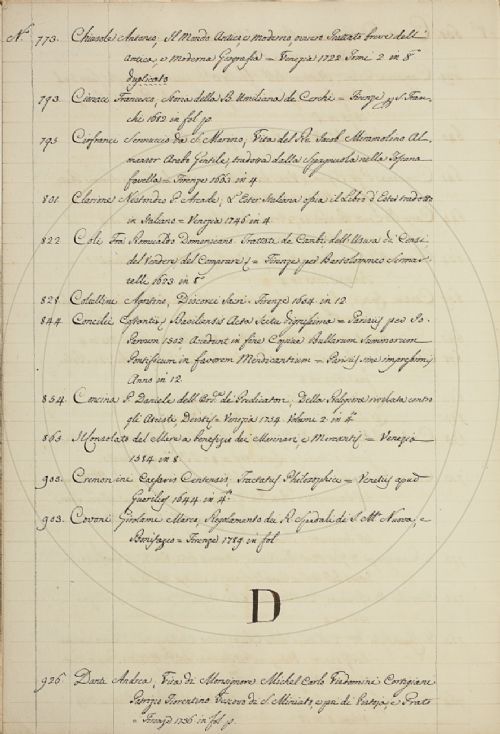 N.° 773. Chiusole Antonio, Il Mondo Antico e moderno, ovvero Trattato breve dell'
antica, e moderna Geografia = Venezia 1722 Tomi 2 in 8°
duplicato
793 Cionacci Francesco, Storia della B. Umiliana de Cerchi = Firenze p S. Fran-
che 1682 in fol. p.o
795 Cirfranci Sennuccio da S. Marino, Vita del Rè Jacob
Arabo Gentile, tradotta dalla Spagnuola nella Toscana
favella = Firenze 1663 in 4
801 Clarione Nisandro P. Arcade, L'Ester Italiana ossia il Libro d'Ester tradotto
in Italiano = Venezia 1746 in 4
822 Coli Fra Romualdo Domenicano Trattato de Cambi, dell'Usura di Censi,
del Vendere, del Comprare = Firenze per Bartolommeo Sermar-
telli 1623 in 8°
828 Coltellini Agostino, Discorsi Sacri. Firenze 1664. in 12
844 Concilii Basiliensis Acta Scitu dignissima = Parisiis per
1512 Accedunt in fine Copiae Bullarum Summorum
Pontificum in favorem Mendicantium = Parisiis sine impressione,
Anno in 12
854. Concina P. Daniele dell'Ord.e de Predicatori, Della Religione rivelata contro
gli Ateisti, Deisti = Venezia 1754 Volumi 2 in 4°
863. Il Consolato del Mare a benefizio de' Marinari, e Mercanti = Venezia
1584 in 8.
900. Cremonine Caesaris Centensis, Tractatus Philosophice = Venetiis apud
Guerilios 1644 in 4°
903. Covoni Girolamo Marco, Regolamento dei R. Spedali di S. M.a Nuova, e
Bonifazio = Firenze 1789 in fol
D
926 Dante Andrea, Vita di Monsignore Michel Carlo Visdomini Cortigiani
Patrizio Fiorentino Vescovo di S. Miniato, e poi di Pistoja, e Prato
= Firenze 1736 in fol p.